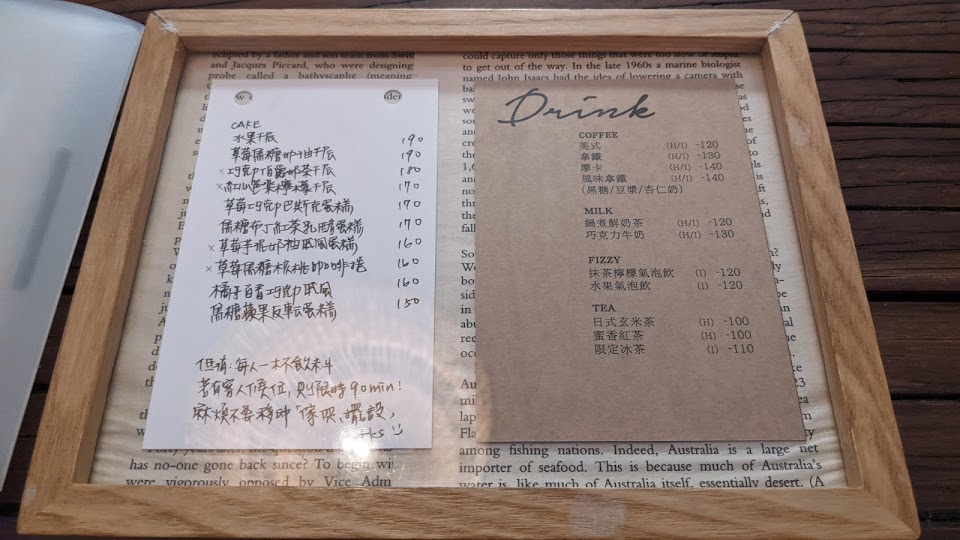 oped by a father and son team from Swit
and Jacques Piccard, who were designing
probe called a bathyscaphe (meaning
could capture only those things that were too slow or
to get out of the way. In the late 1960s a marine biologist
named John Isaacs had the idea of lowering a camera with
CAKE
水果千层 190
草莓焦糖奶油千层 190
×巧克力伯爵奶茶千层 180
檸檬千层 170
草莓巧克力巴斯克蛋糕 170
焦糖布丁紅茶乳酪蛋糕 170
×草莓芋泥奶油戚風蛋糕 160
×草莓焦糖核桃咖啡捲 160
橘子百香巧克力戚風 160
焦糖蘋果反転蛋糕 150
低消:每人一杯飲料
若有客人候位,則限時90min!
麻煩不要移動傢俱、擺設,
tks
Drink
COFFEE
美式 (H/I) -120
拿鐵 (H/I) -130
摩卡 (H/I) -140
風味拿鐵 (H/I) -140
(黑糖/豆漿/杏仁奶)
MILK
鍋煮鮮奶茶 (H/I) -120
巧克力牛奶 (H/I) -130
FIZZY
抹茶檸檬氣泡飲 (I) -120
水果氣泡飲 (I) -120
TEA
日式玄米茶 (H) -100
蜜香紅茶 (H) -100
限定冰茶 (I) -110
has no-one gone back since? To begin wi
were vigorously opposed by Vice Adm
among fishing nations. Indeed, Australia is a large net
importer of seafood. This is because much of Australia's
water is, like much of Australia itself, essentially desert. (A